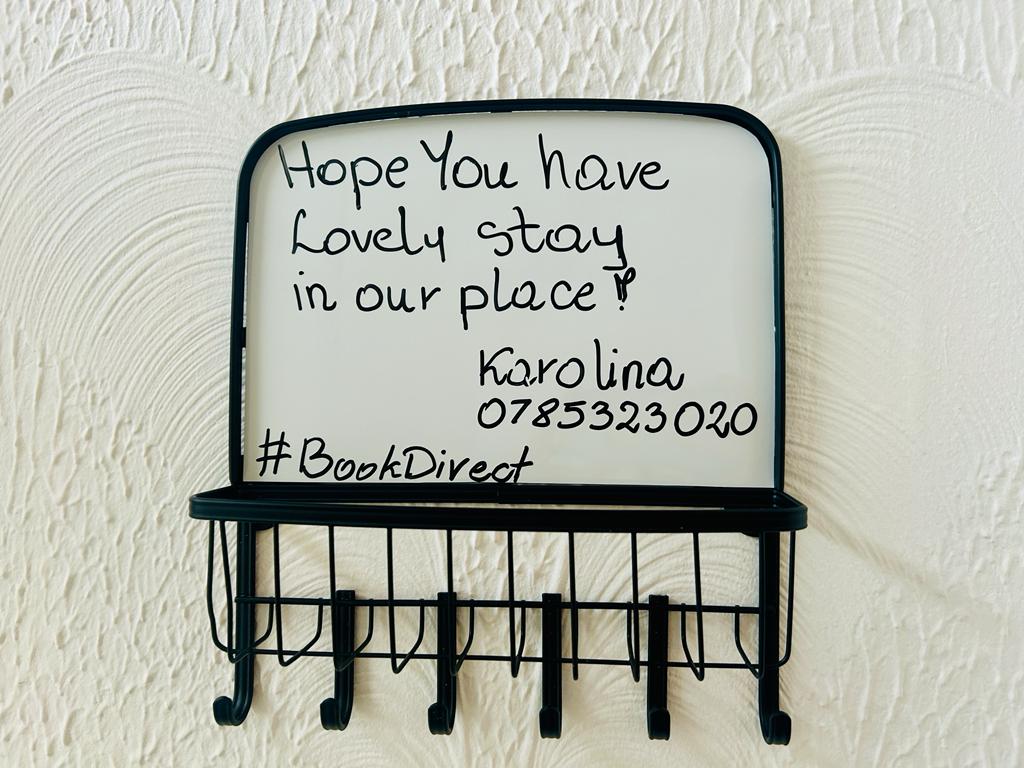 Hope You have
Lovely stay
in our place!
Karolina
0785323020
#BookDirect